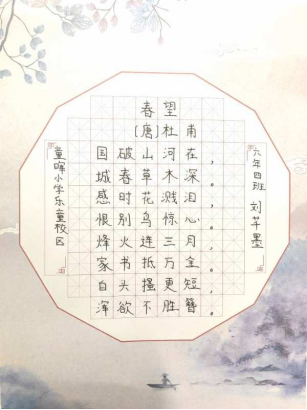 春望
[唐]杜甫
国破山河在，
城春草木深。
感时花溅泪，
恨别鸟惊心。
烽火连三月，
家书抵万金。
白头搔更短，
浑欲不胜簪。
六年四班 刘芊墨
童晖小学乐童校区